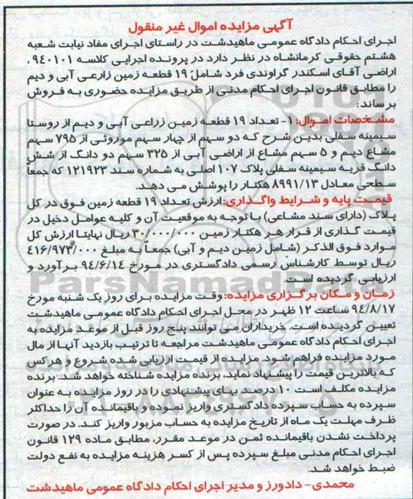 آگهی مزایده اموال غیر منقول
اجرای احکام دادگاه عمومی ماهیدشت در راستای اجرای مفاد نیابت شعبه
هشتم حقوقی کرمانشاه در نظر دارد در پرونده اجرایی کلاسه ۹۴۰۱۰۱.
اراضی آقای اسکندر گراوندی فرد شامل ۱۹ قطعه زمین زارعی آبی و دیم را
مطابق قانون اجرای احکام مدنی از طریق مزایده حضوری به فروش
برساند:
مشخصات اموال: ۱- تعداد ۱۹ قطعه زمین زراعی آبی و دیم از روستا
سیمینه سفلی بدین شرح که دو سهم از چهار سهم موروثی از ۷۹۵ سهم
مشاع دیم و ۵ سهم مشاع از اراضی آبی از ۳۲۵ سهم دو دانگ از شش
دانگ قریه سیمینه سفلی پلاک ۱۰۷ اصلی به شماره سند ۱۲۱۹۲۳ که جمعاً
سطحی معادل ۸۹۹۱/۱۳ هکتار را پوشش می دهد.
قیمت پایه و شرایط واگذاری: ارزش تعداد ۱۹ قطعه زمین فوق در کل
پلاک (دارای سند مشاعی) با توجه به موقعیت آن و کلیه عوامل دخیل در
قیمت گذاری از قرار هر هکتار زمین ۳۰/۰۰۰/۰۰۰ ریال نهایتا ارزش کل
موارد فوق الذکر (شامل زمین دیم و آبی) جمعاً به مبلغ ۴۱۶/۹۷۳/۰۰۰
ریال توسط کارشناس رسمی دادگستری در مورخ ۹۴/۶/۱۴ برآورد و
ارزیابی گردیده است.
زمان و مکان برگزاری مزایده: وقت مزایده برای روز یک شنبه مورخ
۹۴/۸/۱۷ ساعت ۱۲ ظهر در محل اجرای احکام دادگاه عمومی ماهیدشت
تعیین گردیده است. خریداران می توانند پنج روز قبل از موعد مزایده به
اجرای احکام دادگاه عمومی ماهیدشت مراجعه تا ترتیب بازدید آنها از مال
مورد مزایده فراهم شود. مزایده از قیمت ارزیابی شده شروع و هرکس
که بالاترین قیمت را پیشنهاد نماید، برنده مزایده شناخته خواهد شد. برنده
مزایده مکلف است ۱۰ درصد بهای پیشنهادی را در روز مزایده به عنوان
سپرده به حساب سپرده دادگستری واریز نموده و باقیمانده آن را حداکثر
ظرف مهلت یک ماه از تاریخ مزایده به حساب مزبور واریز کند. در صورت
پرداخت نشدن باقیمانده ثمن در موعد مقرر، مطابق ماده ۱۲۹ قانون
اجرای احکام مدنی مبلغ سپرده پس از کسر هزینه مزایده به نفع دولت
ضبط خواهد شد.
محمدی - دادورز و مدیر اجرای احکام دادگاه عمومی ماهیدشت